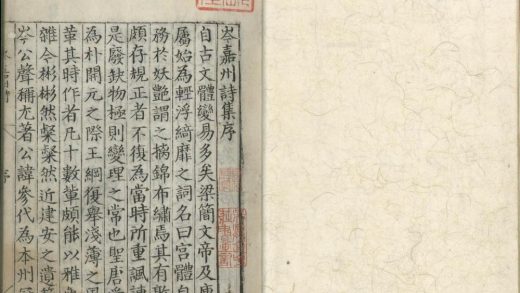 岑嘉州詩集序
自古文體變易多矣梁簡文帝及
屬始為輕浮綺靡之詞名曰宮體自
務於妖艷謂之摛錦布繡焉其有
頗存規正者不復為當時所重諷諫
是廢缺物極則變理之常也聖唐受
為朴開元之際王綱復舉淺薄之
華其時作者凡十數輩頗能以雅
雜今彬彬然粲粲然近建安之遺
岑公聲稱尤著公諱參代為本州
序